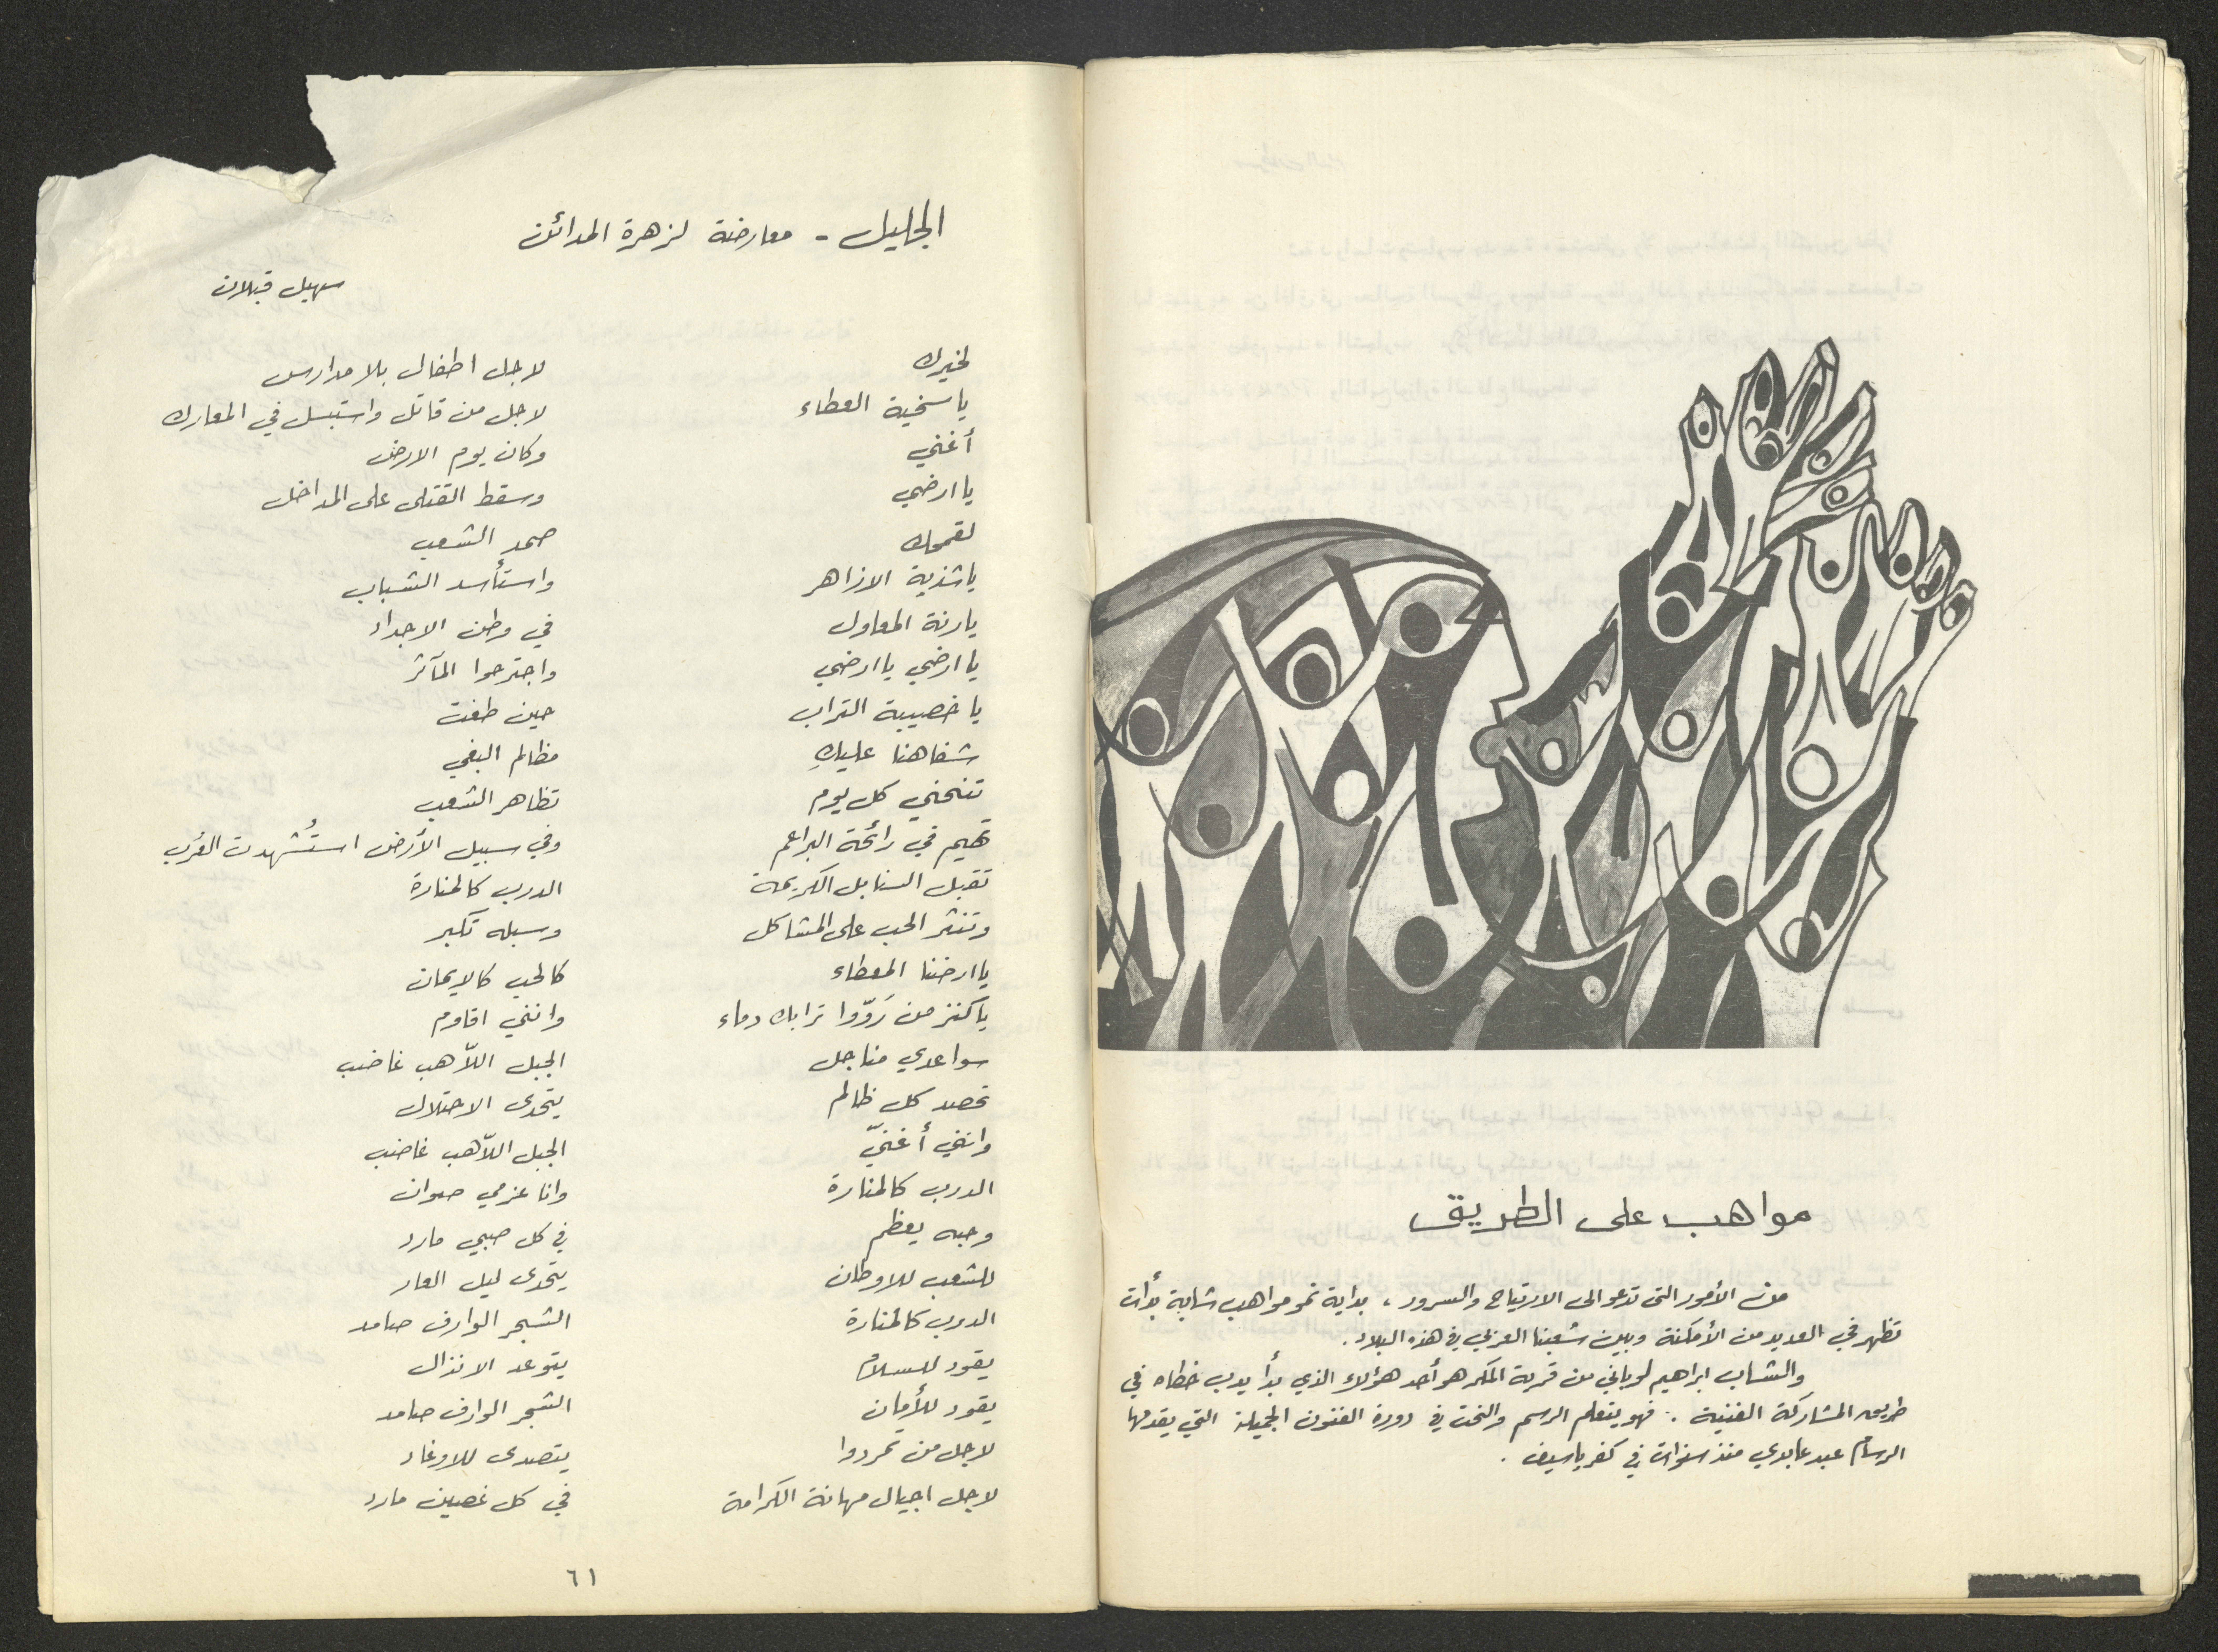 مواهب على الطريق
من الأمور التي تدعو الى الارتياح والسرور ، بداية نمو مواهب شابة بدأت
تظهر في العديد من الأمكنة وبين شعبنا العربي في هذه البلاد .
والشاب ابراهيم لوباني من قرية المكر هو أحد هؤلاء الذي بدأ يدب خطاه في
طريق المشاركة الفنية . فهو يتعلم الرسم والنحت في دورة الفنون الجميلة التي يقدمها
الرسام عبد عابدي منذ سنوات في كفر ياسيف .
الجليل - معارضة لزهرة المدائن
سهيل قبلان
لخيرك
يا سخية العطاء
أغني
يا ارضي
لقمحك
يا شذية الازاهر
يا رنة المعاول
يا ارضي يا ارضي
يا خصيبة التراب
شفاهنا عليكِ
تنحني كل يوم
تهيم في رائحة البراعم
تقبل السنابل الكريمة
وتنثر الحب على المشاكل
يا ارضنا المعطاء
يا كنز من رَوّوا ترابك دماء
سواعدي مناجل
تحصد كل ظالم
وانني أغنيّ
الدرب كالمنارة
وحبه يعظم
للشعب للاوطان
الدرب كالمنارة
يقود للسلام
يقود للأمان
لاجل من تمردوا
لاجل اجيال مهانة الكرامة
لاجل اطفال بلا مدارس
لاجل من قاتل واستبسل في المعارك
وكان يوم الارض
وسقط القتلى على المداخل
صمد الشعب
واستأسد الشباب
في وطن الاجداد
واجترحوا المآثر
حين طغت
مظالم البغي
تظاهر الشعب
وفي سبيل الأرض استُشهدت
الدرب كالمنارة
وسبله تكبر
كالحب كالايمان
وانني اقاوم
الجبل اللاّهب غاضب
يتحدى الاحتلال
الجبل اللاّهب غاضب
وانا عزمي صوان
في كل صبي مارد
يتحدى ليل العار
الشجر الوارف صامد
يتوعد الانذال
الشجر الوارف صامد
يتصدى للاوغاد
في كل غصين مارد
٦١